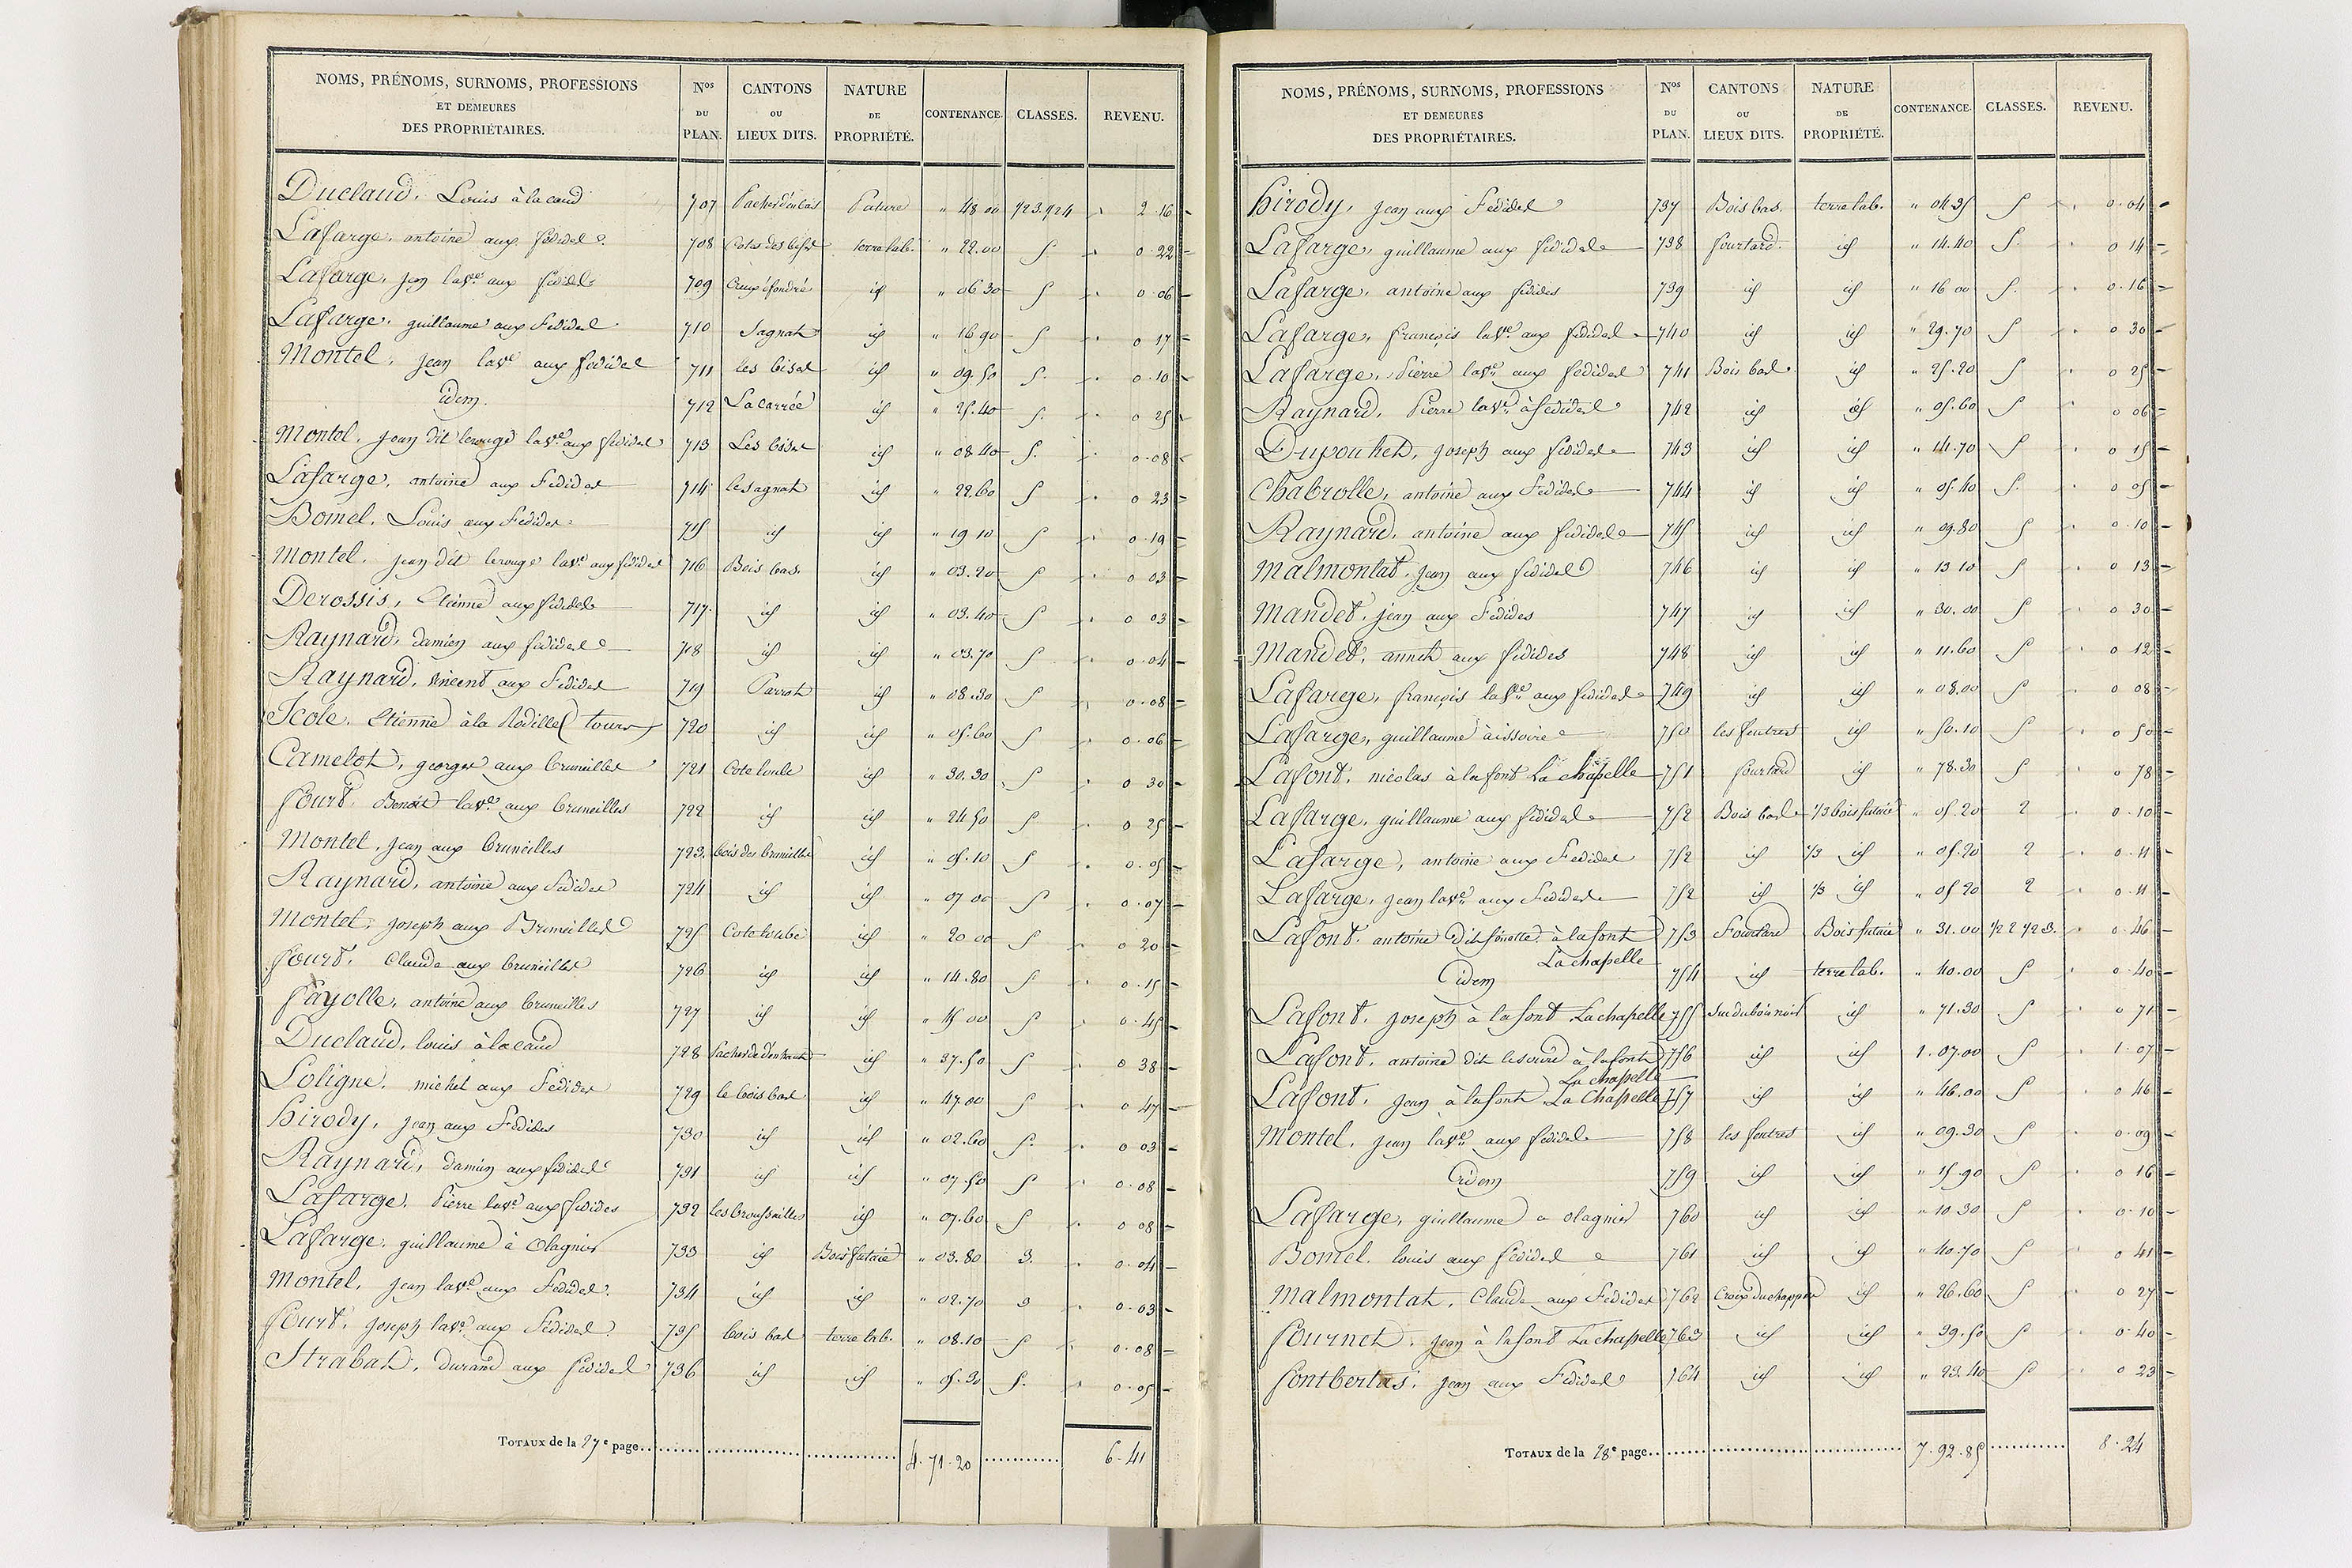 NOMS, PRÉNOMS, SURNOMS, PROFESSIONS ET DEMEURES DES PROPRIÉTAIRES. Nos DU PLAN. CANTONS OU LIEUX DITS. NATURE DE PROPRIÉTÉ. CONTENANCE. CLASSES. REVENU.
Duclaud, Louis à la caud 707 Pature " 48 00 2 16
Lafarge, antoine aux fedides 708 terre lab. " 22.00 5 0 22
Lafarge, jean aux fedides 709 id " 06 30 5 0 06
Lafarge, guillaume aux fedides 710 Sagnat id " 16 90 5 0 17
Montel, jean aux fedides 711 les bisas id " 09.50 5 0 10
idem 712 La carrée id " 25.40 5 0 25
Montel, jean dit lerouge aux fedides 713 Les bisas id " 08 40 5 0 08
Lafarge, antoine aux fedides 714 le sagnat id " 22.60 5 0 23
Bomel, Louis aux fedides 715 id id " 19 10 5 0 19
Montel, jean dit lerouge aux fedides 716 Bois bas id " 03.20 5 0 03
Derossis, Etienne aux fedides 717 id id " 03.40 5 0 03
Raynard, damien aux fedides 718 id id " 03.70 5 0 04
Raynard, vincent aux fedides 719 Parrot id " 08.30 5 0 08
Etienne à la (tours) 720 id id " 05.60 5 0 06
Camelot, george aux bruneilles 721 id " 30.30 5 0 30
fourt, Benoit aux bruneilles 722 id id " 24 50 5 0 25
Montel, jean aux bruneilles 723 bois des bruneilles id " 05.10 5 0 05
Raynard, antoine aux fedides 724 id id " 07 00 5 0 07
Montel, joseph aux Bruneilles 725 id " 20 00 5 0 20
fourt, Claude aux bruneilles 726 id id " 14.80 5 0 15
fayolle, antoine aux bruneilles 727 id id " 45 00 5 0 45
Duclaud, louis à la caud 728 id " 37.50 5 0 38
Soligne, michel aux fedides 729 le bois bas id " 47.00 5 0 47
hirody, jean aux fedides 730 id id " 02.60 5 0 03
Raynard, damien aux fedides 731 id id " 07.50 5 0 08
Lafarge, Pierre aux fedides 732 les broussailles id " 07.60 5 0 08
Lafarge, guillaume à Olagnier 733 id Bois futaie " 03.80 3 0 04
Montel, jean aux fedides 734 id id " 02.70 3 0 03
fourt, joseph aux fedides 735 bois bas terre lab. " 08.10 5 0 08
Strabat, durand aux fedides 736 id id " 05.30 5 0 05
TOTAUX de la 27e page 4.71.20 6.41
NOMS, PRÉNOMS, SURNOMS, PROFESSIONS ET DEMEURES DES PROPRIÉTAIRES. Nos DU PLAN. CANTONS OU LIEUX DITS. NATURE DE PROPRIÉTÉ. CONTENANCE. CLASSES. REVENU.
hirody, jean aux fedides 737 Bois bas terre lab. " 04.35 5 0 04
Lafarge, guillaume aux fedides 738 fourtard id " 14.40 5 0 14
Lafarge, antoine aux fedides 739 id id " 16 00 5 0 16
Lafarge, françois aux fedides 740 id id " 29.70 5 0 30
Lafarge, Pierre aux fedides 741 Bois bas id " 25.20 5 0 25
Raynard, Pierre à fedides 742 id id " 05.60 5 0 06
Dupouhet, joseph aux fedides 743 id id " 14.70 5 0 15
Chabrolle, antoine aux fedides 744 id id " 05.40 5 0 05
Raynard, antoine aux fedides 745 id id " 09.80 5 0 10
Malmontat, jean aux fedides 746 id id " 13 10 5 0 13
Mandet, jean aux fedides 747 id id " 30.00 5 0 30
Mandet, annet aux fedides 748 id id " 11.60 5 0 12
Lafarge, françois aux fedides 749 id id " 08.00 5 0 08
Lafarge, guillaume à issoire 750 les foutres id " 50.10 5 0 50
Lafont, nicolas à la font La chapelle 751 fourtard id " 78.30 5 0 78
Lafarge, guillaume aux fedides 752 Bois bas 1/3 bois futaie " 05.20 2 0 10
Lafarge, antoine aux fedides 752 id 1/3 id " 05.20 2 0 11
Lafarge, jean aux fedides 752 id 1/3 id " 05 20 2 0 11
Lafont, antoine dit finette à la font La chapelle 753 Fourtard Bois futaie " 31.00 1/2 2 1/2 3. 0 46
idem 754 id terre lab. " 40.00 5 0 40
Lafont, joseph à la font La chapelle 755 Suc du bois noir id " 71.30 5 0 71
Lafont, antoine dit à la font La chapelle 756 id id 1.07.00 5 1 07
Lafont, jean à la font La Chapelle 757 id id " 46.00 5 0 46
Montel, jean aux fedides 758 les foutres id " 09.30 5 0 09
idem 759 id id " 15.90 5 0 16
Lafarge, guillaume a olagnier 760 id id " 10.30 5 0 10
Bomel, louis aux fedides 761 id id " 40.70 5 0 41
Malmontat, Claude aux fedides 762 Croix du chappon id " 26.60 5 0 27
fournet, jean à la font La chapelle 763 id id " 39.50 5 0 40
fontbertas, jean aux fedides 764 id id " 23.40 5 0 23
TOTAUX de la 28e page 7.92.85 8.24